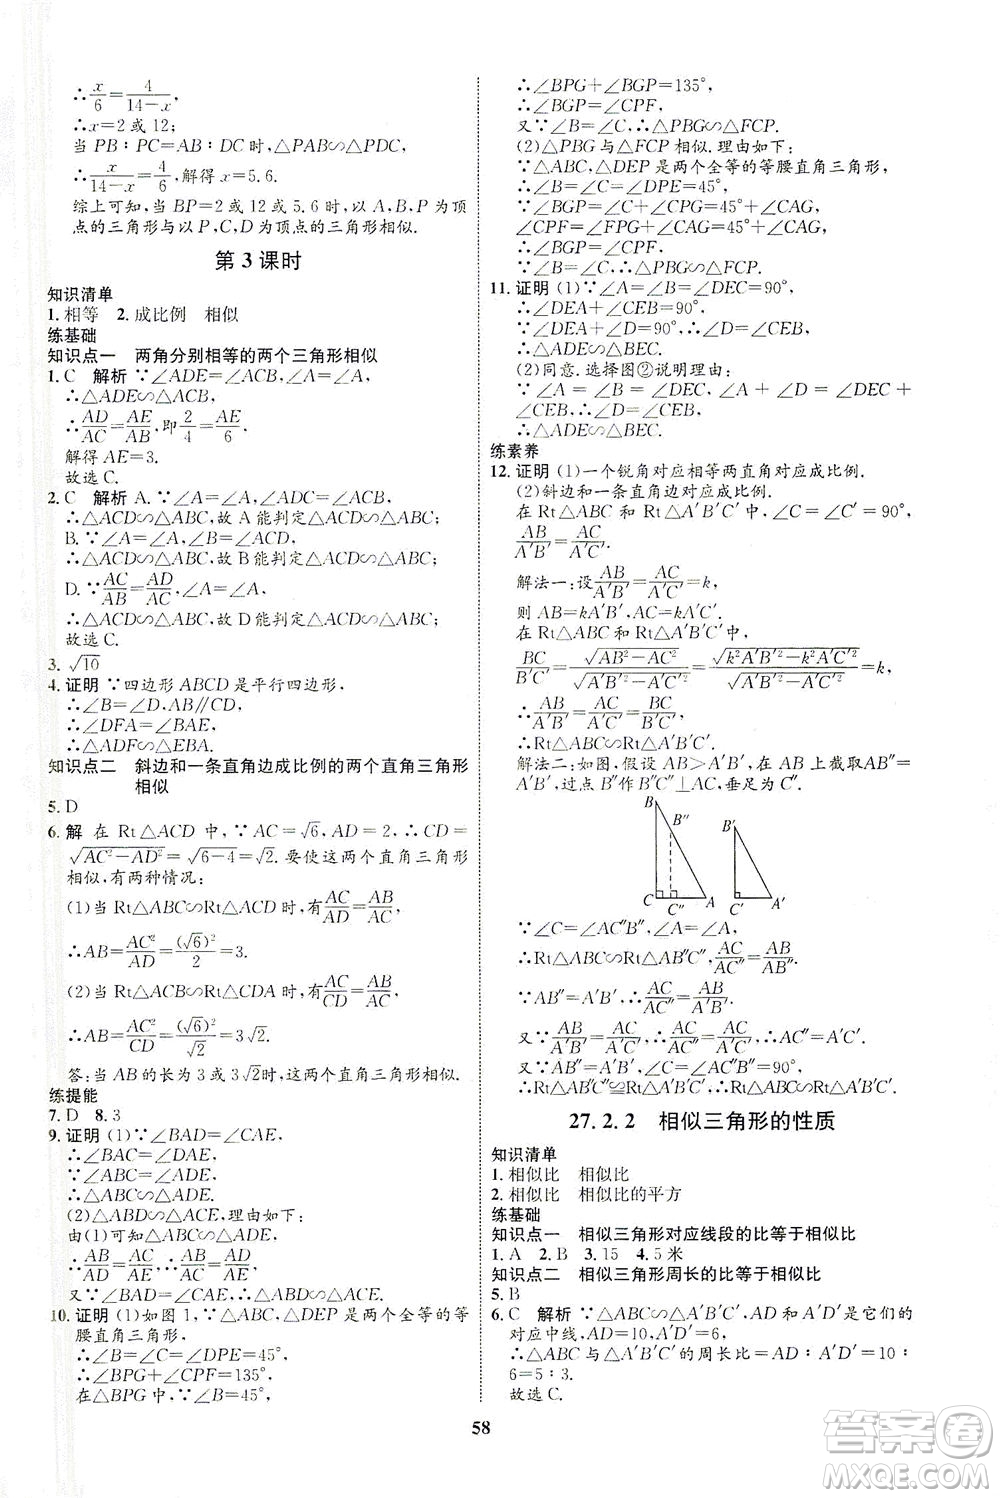 ∴x/6=4/(14-x),
∴x=2或12;
当PB∶PC=AB∶DC时,△PAB∽△PDC,
∴x/(14-x)=4/6,解得x=5.6.
综上可知,当BP=2或12或5.6时,以A,B,P为顶
点的三角形与以P,C,D为顶点的三角形相似.
第3课时
知识清单
1.相等 2.成比例 相似
练基础
知识点一 两角分别相等的两个三角形相似
1.C 解析 ∵∠ADE=∠ACB,∠A=∠A,
∴△ADE∽△ACB,
∴AD/AC=AE/AB,即2/4=AE/6,
解得AE=3.
故选C.
2.C 解析 A.∵∠A=∠A,∠ADC=∠ACB,
∴△ACD∽△ABC,故A能判定△ACD∽△ABC;
B.∵∠A=∠A,∠ACD=∠B,
∴△ACD∽△ABC,故B能判定△ACD∽△ABC;
D.∵AC/AB=AD/AC,∠A=∠A,
∴△ACD∽△ABC,故D能判定△ACD∽△ABC;
故选C.
3.√10
4.证明 ∵四边形ABCD是平行四边形,
∴∠B=∠D,AB∥CD,
∴∠DFA=∠BAE,
∴△ADF∽△EBA.
知识点二 斜边和一条直角边成比例的两个直角三角形
相似
5.D
6.解 在Rt△ACD中,∵AC=√6,AD=2,∴CD=
√(AC²-AD²)=√(6-4)=√2.要使这两个直角三角形
相似,有两种情况:
(1)当Rt△ABC∽Rt△ACD时,有AC/AD=AB/AC,
∴AB=AC²/AD=(√6)²/2=3.
(2)当Rt△ACB∽Rt△CDA时,有AC/CD=AB/AC,
∴AB=AC²/CD=(√6)²/√2=3√2.
答:当AB的长为3或3√2时,这两个直角三角形相似.
练提能
7.D 8.3
9.证明 (1)∵∠BAD=∠CAE,
∴∠BAC=∠DAE,
∵∠ABC=∠ADE,
∴△ABC∽△ADE.
(2)△ABD∽△ACE,理由如下:
由(1)可知△ABC∽△ADE,
∴AB/AD=AC/AE,∴AB/AC=AD/AE,
又∵∠BAD=∠CAE,∴△ABD∽△ACE.
10.证明 (1)如图1,∵△ABC,△DEP是两个全等的等
腰直角三角形,
∴∠B=∠C=∠DPE=45°,
∴∠BPG+∠CPF=135°,
在△BPG中,∵∠B=45°,
∴∠BPG+∠BGP=135°,
∴∠BGP=∠CPF,
又∵∠B=∠C,∴△PBG∽△FCP.
(2)△PBG与△FCP相似.理由如下:
∵△ABC,△DEP是两个全等的等腰直角三角形,
∴∠B=∠C=∠DPE=45°,
∵∠BGP=∠C+∠CPG=45°+∠CAG,
∠CPF=∠FPG+∠CAG=45°+∠CAG,
∴∠BGP=∠CPF,
∵∠B=∠C,∴△PBG∽△FCP.
11.证明 (1)∵∠A=∠DEC=90°,
∴∠DEA+∠CEB=90°,
∵∠DEA+∠D=90°,∴∠D=∠CEB,
∴△ADE∽△BEC.
(2)同意.选择图②说明理由:
∵∠A=∠B=∠DEC,∠A+∠D=∠DEC+
∠CEB,∴∠D=∠CEB,
∴△ADE∽△BEC.
练素养
12.证明 (1)一个锐角对应相等两直角对应成比例.
(2)斜边和一条直角边对应成比例.
在Rt△ABC和Rt△A′B′C′中,∠C=∠C′=90°,
AB/A′B′=AC/A′C′.
解法一:设AB/A′B′=AC/A′C′=k,
则AB=kA′B′,AC=kA′C′.
在Rt△ABC和Rt△A′B′C′中,
BC/B′C′=√(AB²-AC²)/√(A′B′²-A′C′²)=√(k²A′B′²-k²A′C′²)/√(A′B′²-A′C′²)=k,
∴AB/A′B′=AC/A′C′=BC/B′C′,
∴Rt△ABC∽Rt△A′B′C′.
解法二:如图,假设AB>A′B′,在AB上截取AB″=
A′B′,过点B″作B″C″⊥AC,垂足为C″.
B B″ B′
C C″ A C′ A′
∵∠C=∠AC″B″,∠A=∠A,
∴Rt△ABC∽Rt△AB″C″,∴AC/AC″=AB/AB″,
∵AB″=A′B′,∴AC/AC″=AB/A′B′,
又∵AB/A′B′=AC/A′C′,∴AC/AC″=AC/A′C′,∴AC″=A′C′.
又∵AB″=A′B′,∠C′=∠AC″B″=90°,
∴Rt△AB″C″≌Rt△A′B′C′,
∴Rt△ABC∽Rt△A′B′C′.
27.2.2 相似三角形的性质
知识清单
1.相似比 相似比
2.相似比 相似比的平方
练基础
知识点一 相似三角形对应线段的比等于相似比
1.A 2.B 3.15 4.5米
知识点二 相似三角形周长的比等于相似比
5.B
6.C 解析 ∵△ABC∽△A′B′C′,AD和A′D′是它们的
对应中线,AD=10,A′D′=6,
∴△ABC与△A′B′C′的周长比=AD∶A′D′=10∶
6=5∶3.
故选C.
58
答案圈
MXQE.COM